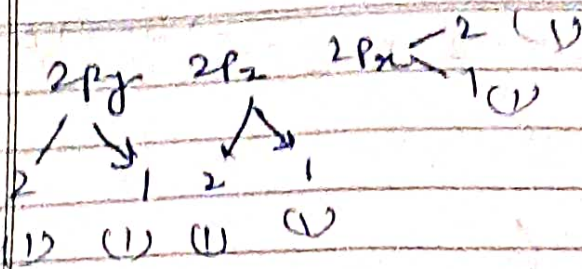 2Py 2Pz 2Px 2 (1)
1 (1)
2 1 2 1
(1) (1) (1) (1)